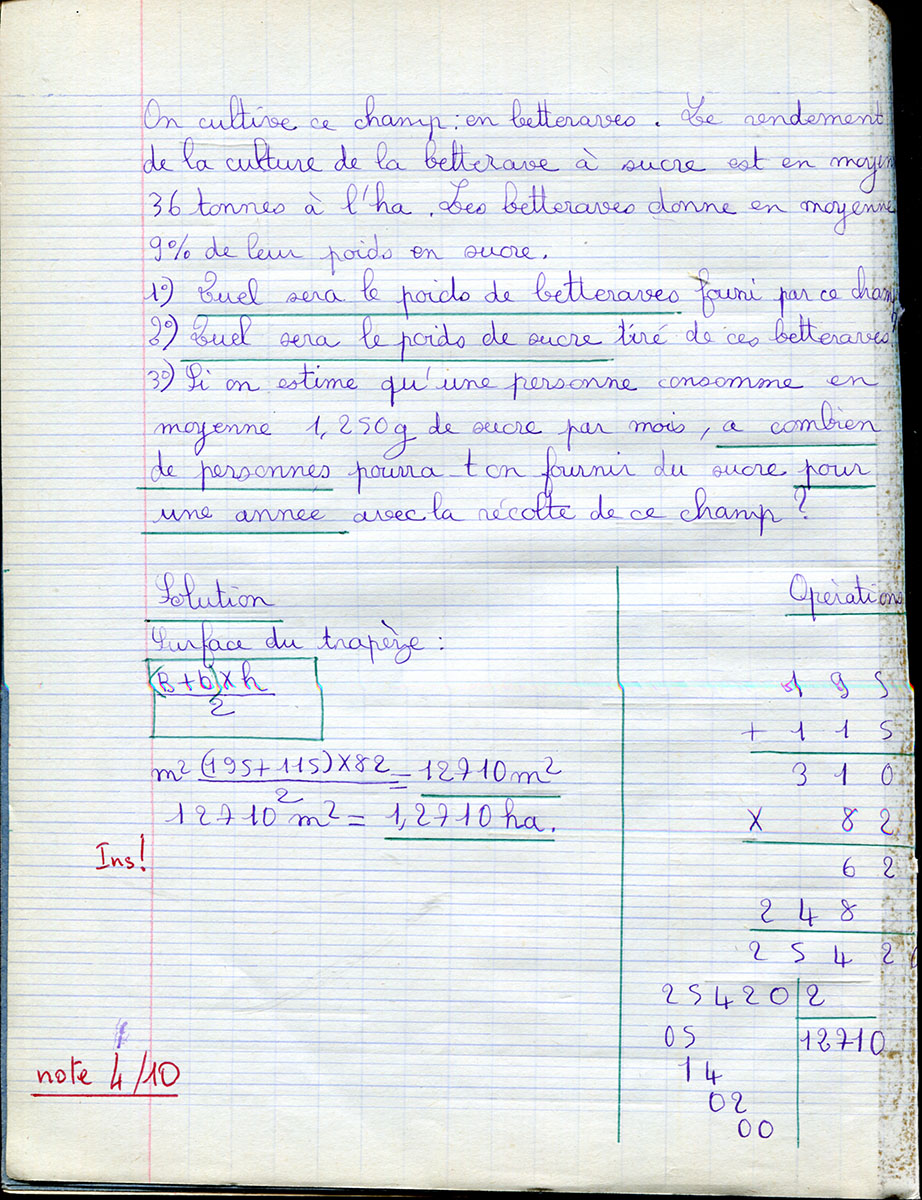 On cultive ce champ : en betteraves. Le rendement
de la culture de la betterave à sucre est en moyen
36 tonnes à l'ha. Les betteraves donne en moyenne
9% de leur poids en sucre.
1°) Quel sera le poids de betteraves fourni par ce cham
2°) Quel sera le poids de sucre tiré de ces betteraves
3°) Si on estime qu'une personne consomme en
moyenne 1,250g de sucre par mois, a combien
de personnes pourra t on fournir du sucre pour
une année avec la récolte de ce champ ?
Solution
Surface du trapèze :
(B + b) x h
2
m² (195 + 115) x 82 = 12710 m²
2
12710 m² = 1,2710 ha.
Ins!
note 4/10
Opérations
195
+ 115
310
X 82
62
248
25420
25420 | 2
05 12710
14
02
00